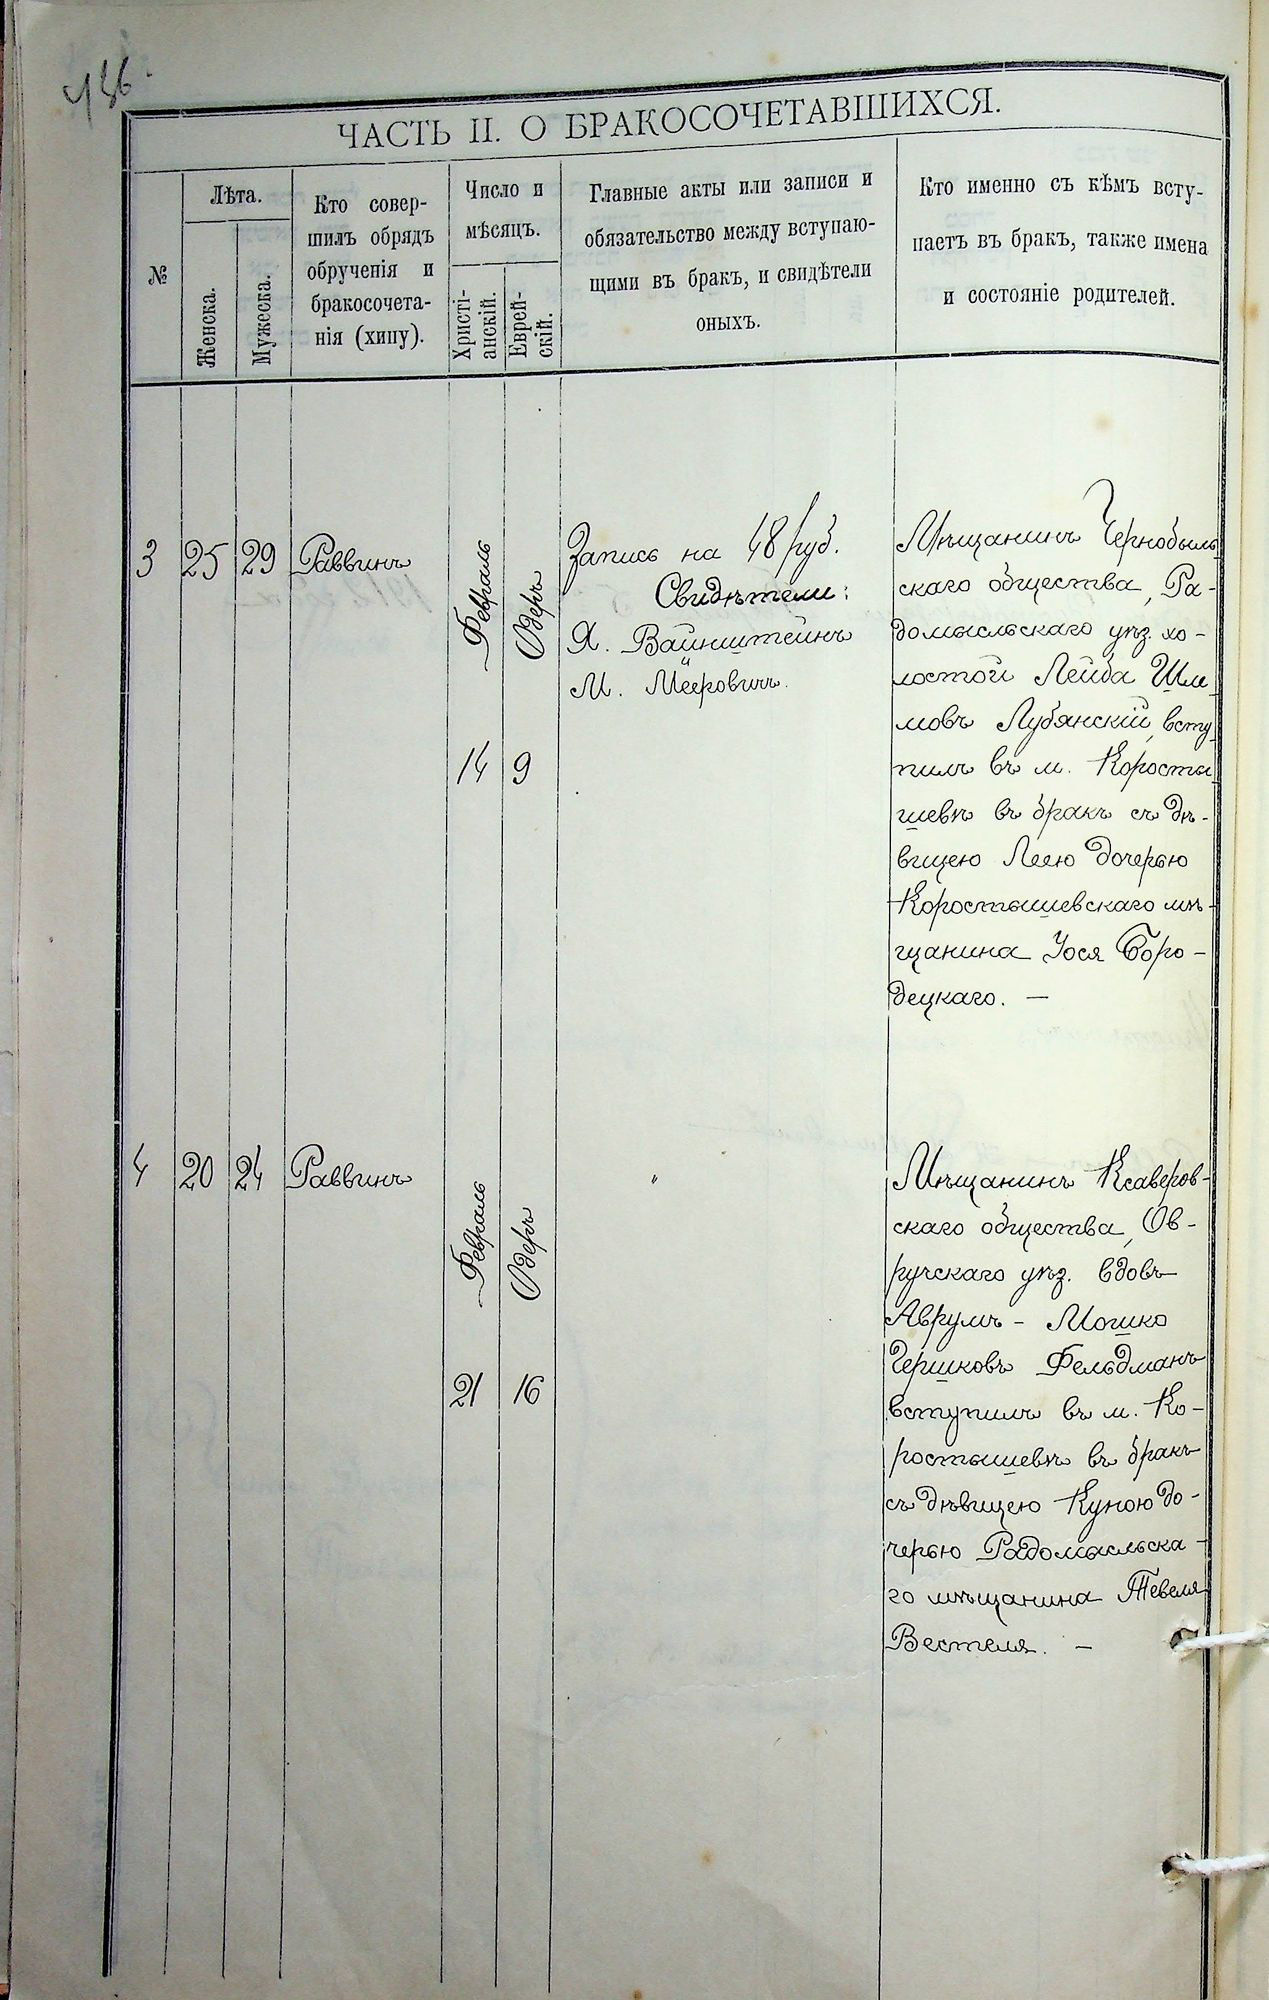 436.
ЧАСТЬ II. О БРАКОСОЧЕТАВШИХСЯ.
№
Лѣта.
Женска.
Мужеска.
Кто совер-
шилъ обрядъ
обрученія и
бракосочета-
нія (хипу).
Число и
мѣсяцъ.
Христі-
анскій.
Еврей-
скій.
Главные акты или записи и
обязательство между вступаю-
щими въ бракъ, и свидѣтели
оныхъ.
Кто именно съ кѣмъ всту-
паетъ въ бракъ, также имена
и состояніе родителей.
3
25
29
Раввинъ
Февраль
14
Одеръ
9
Запись на 48 руб.
Свидѣтели:
Я. Вайнштейнъ
М. Мееровичъ.
Мѣщанинъ Чернобыль
скаго общества, Ра-
домысльскаго уѣз. хо-
лостой Лейба Шле
мовъ Лубянскій, всту
пилъ въ м. Коросты
шевѣ въ бракъ съ дѣ-
вицею Леею дочерью
Коростышевскаго мѣ-
щанина Іося Горо-
децкаго. —
4
20
24
Раввинъ
Февраль
21
Одеръ
16
"
Мѣщанинъ Ксаверов-
скаго общества, Ов-
ручскаго уѣз. вдовъ
Аврумъ - Мошко
Гершковъ Фельдманъ
вступилъ въ м. Ко-
ростышевѣ въ бракъ
съ дѣвицею Куною до-
черью Радомысльска-
го мѣщанина Тевеля
Вестеля. —